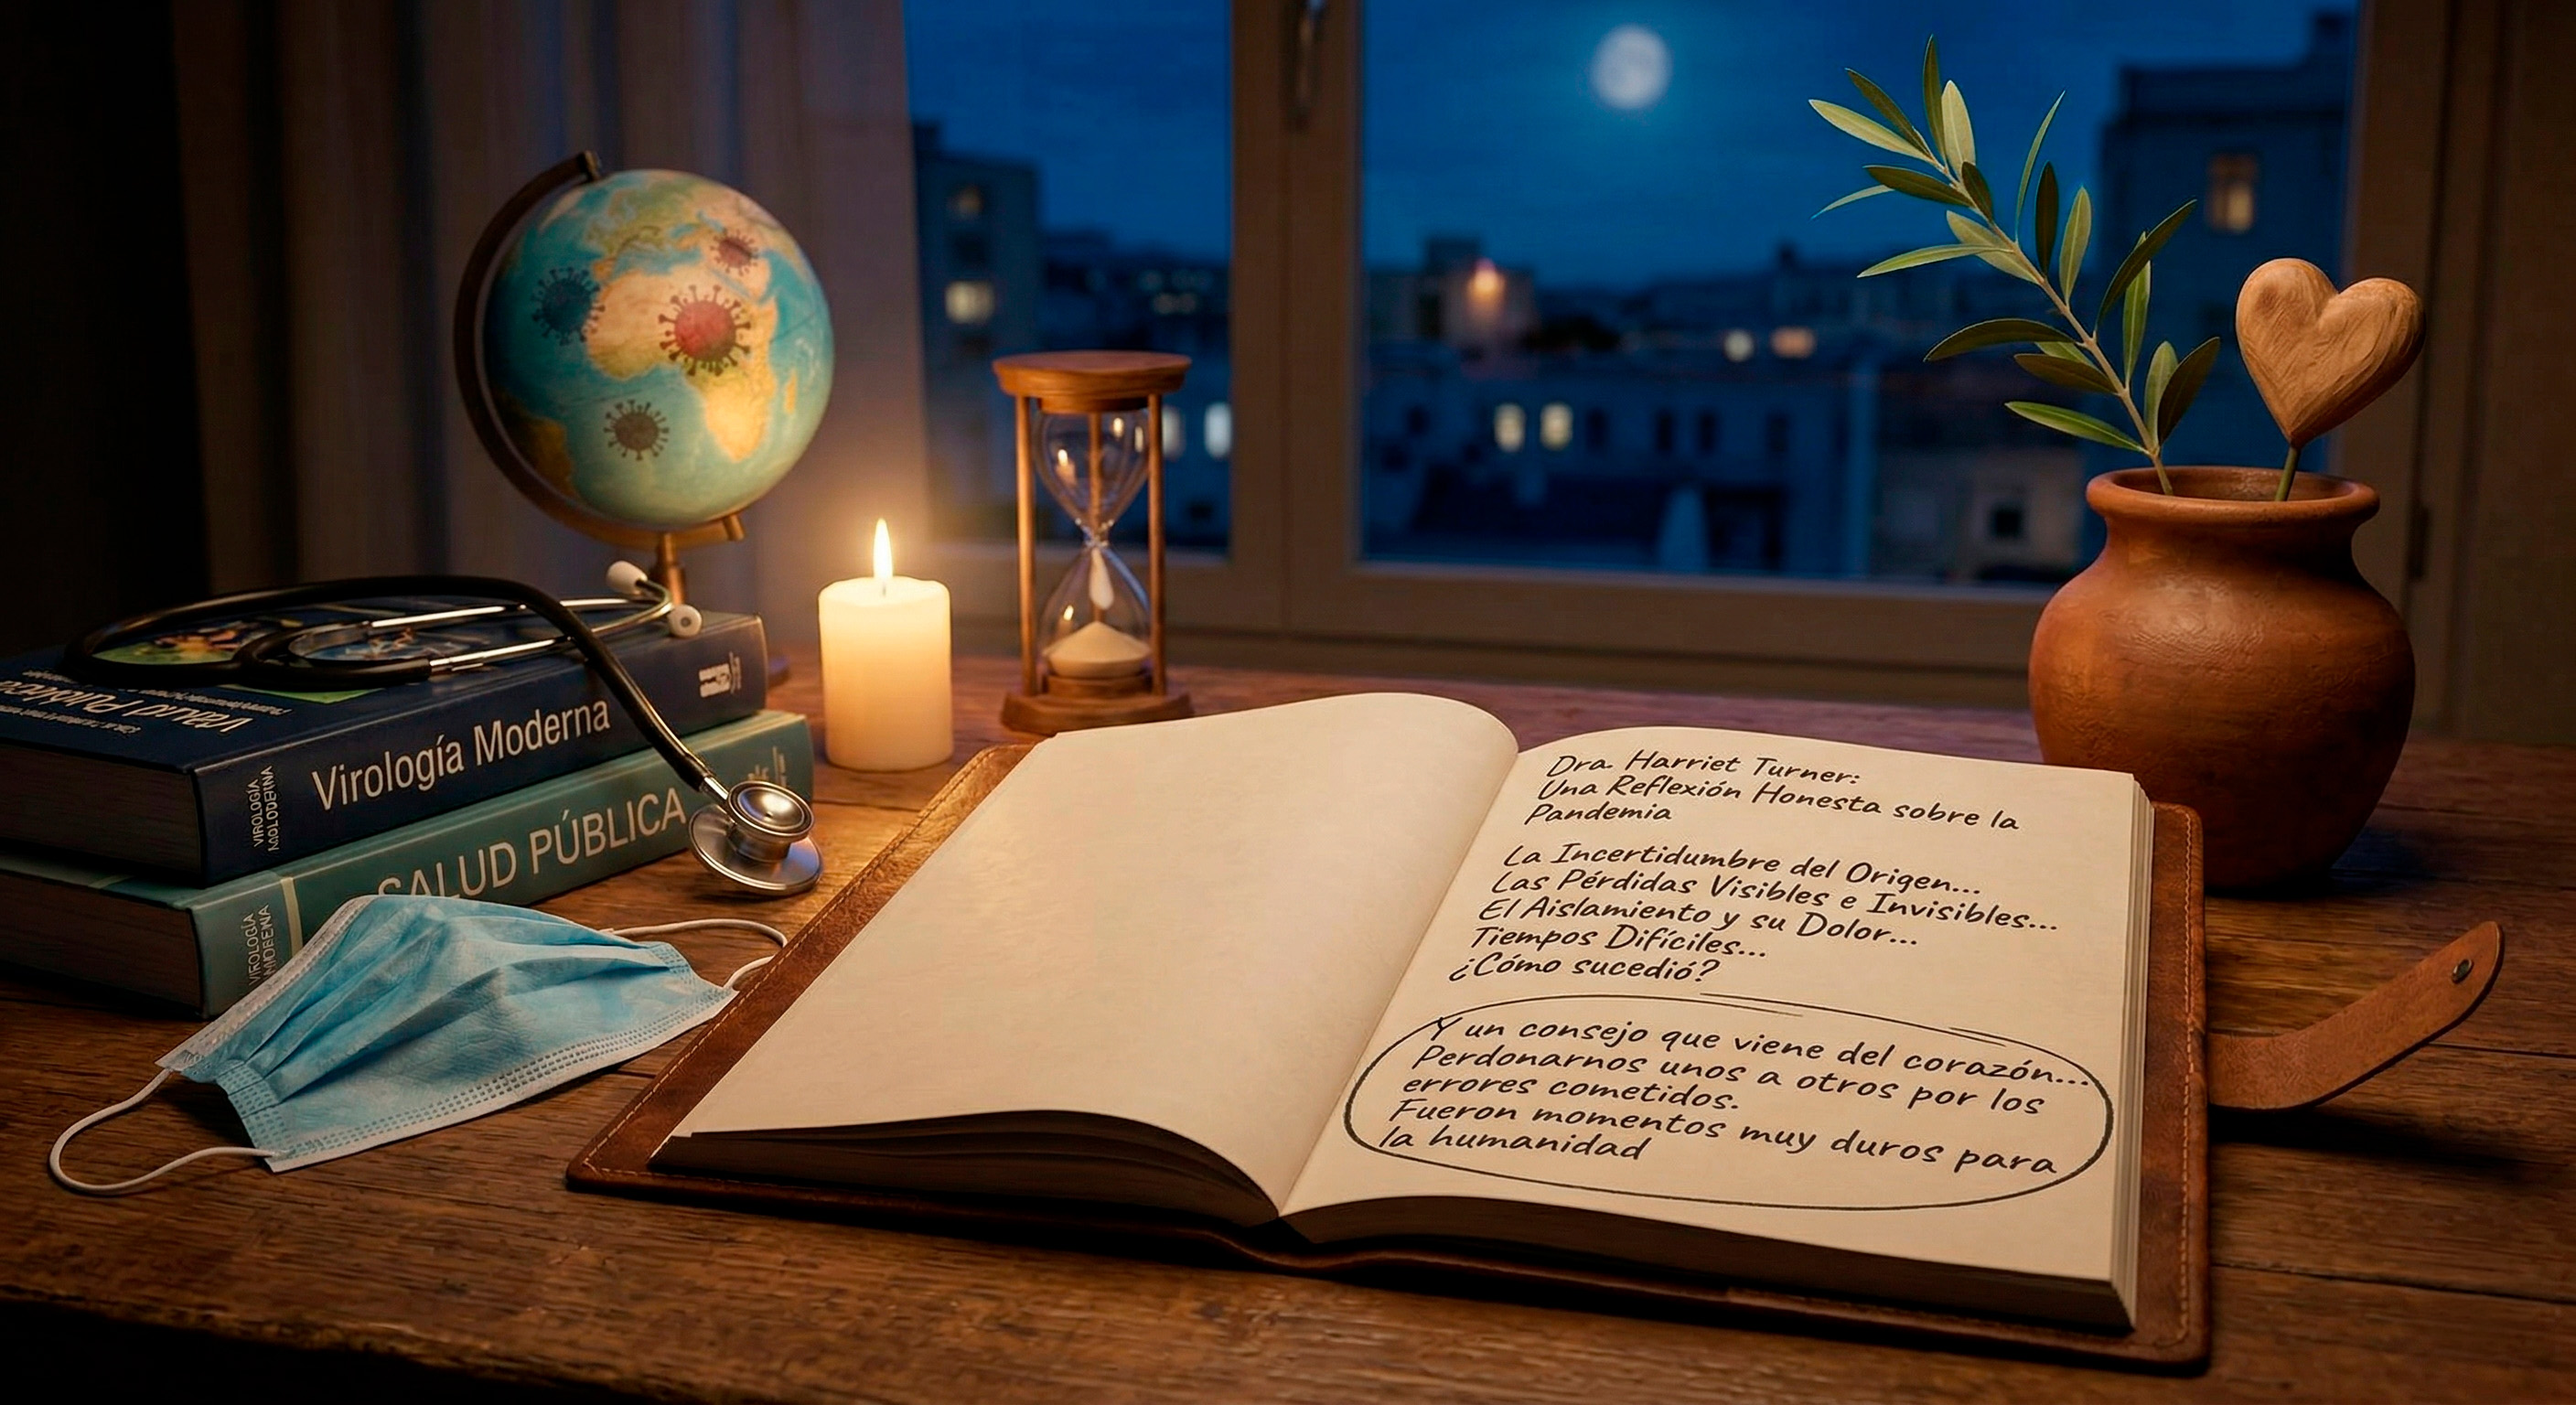 Virología Moderna
VIROLOGÍA
SALUD PÚBLICA
VIROLOGÍA
Dra. Harriet Turner:
Una Reflexión Honesta sobre la
Pandemia
La Incertidumbre del Origen...
Las Pérdidas Visibles e Invisibles...
El Aislamiento y su Dolor...
Tiempos Difíciles...
¿Cómo sucedió?
Y un consejo que viene del corazón...
Perdonarnos unos a otros por los
errores cometidos.
Fueron momentos muy duros para
la humanidad